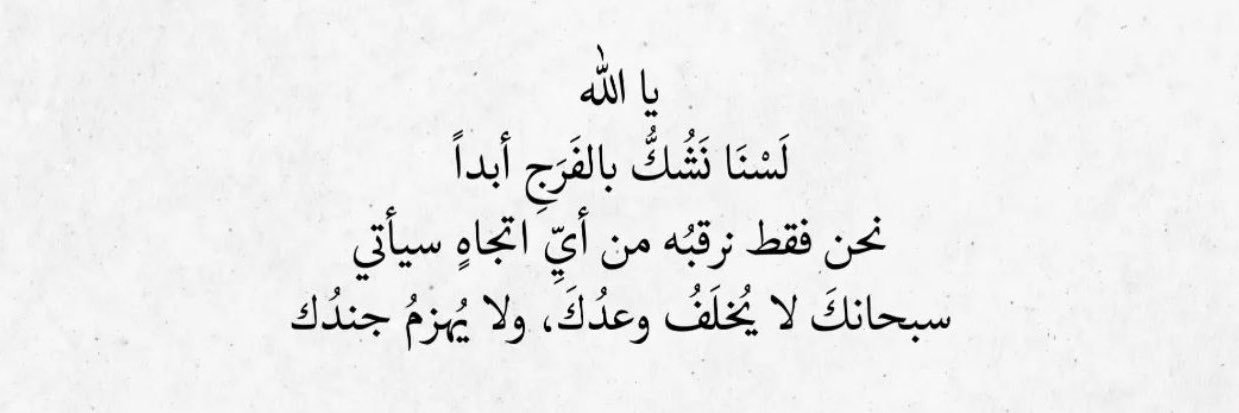 يا الله
لَسْنَا نَشُكُّ بالفَرَجِ أبداً
نحن فقط نرقبُه من أيِّ اتجاهٍ سيأتي
سبحانكَ لا يُخلَفُ وعدُكَ، ولا يُهزمُ جندُك